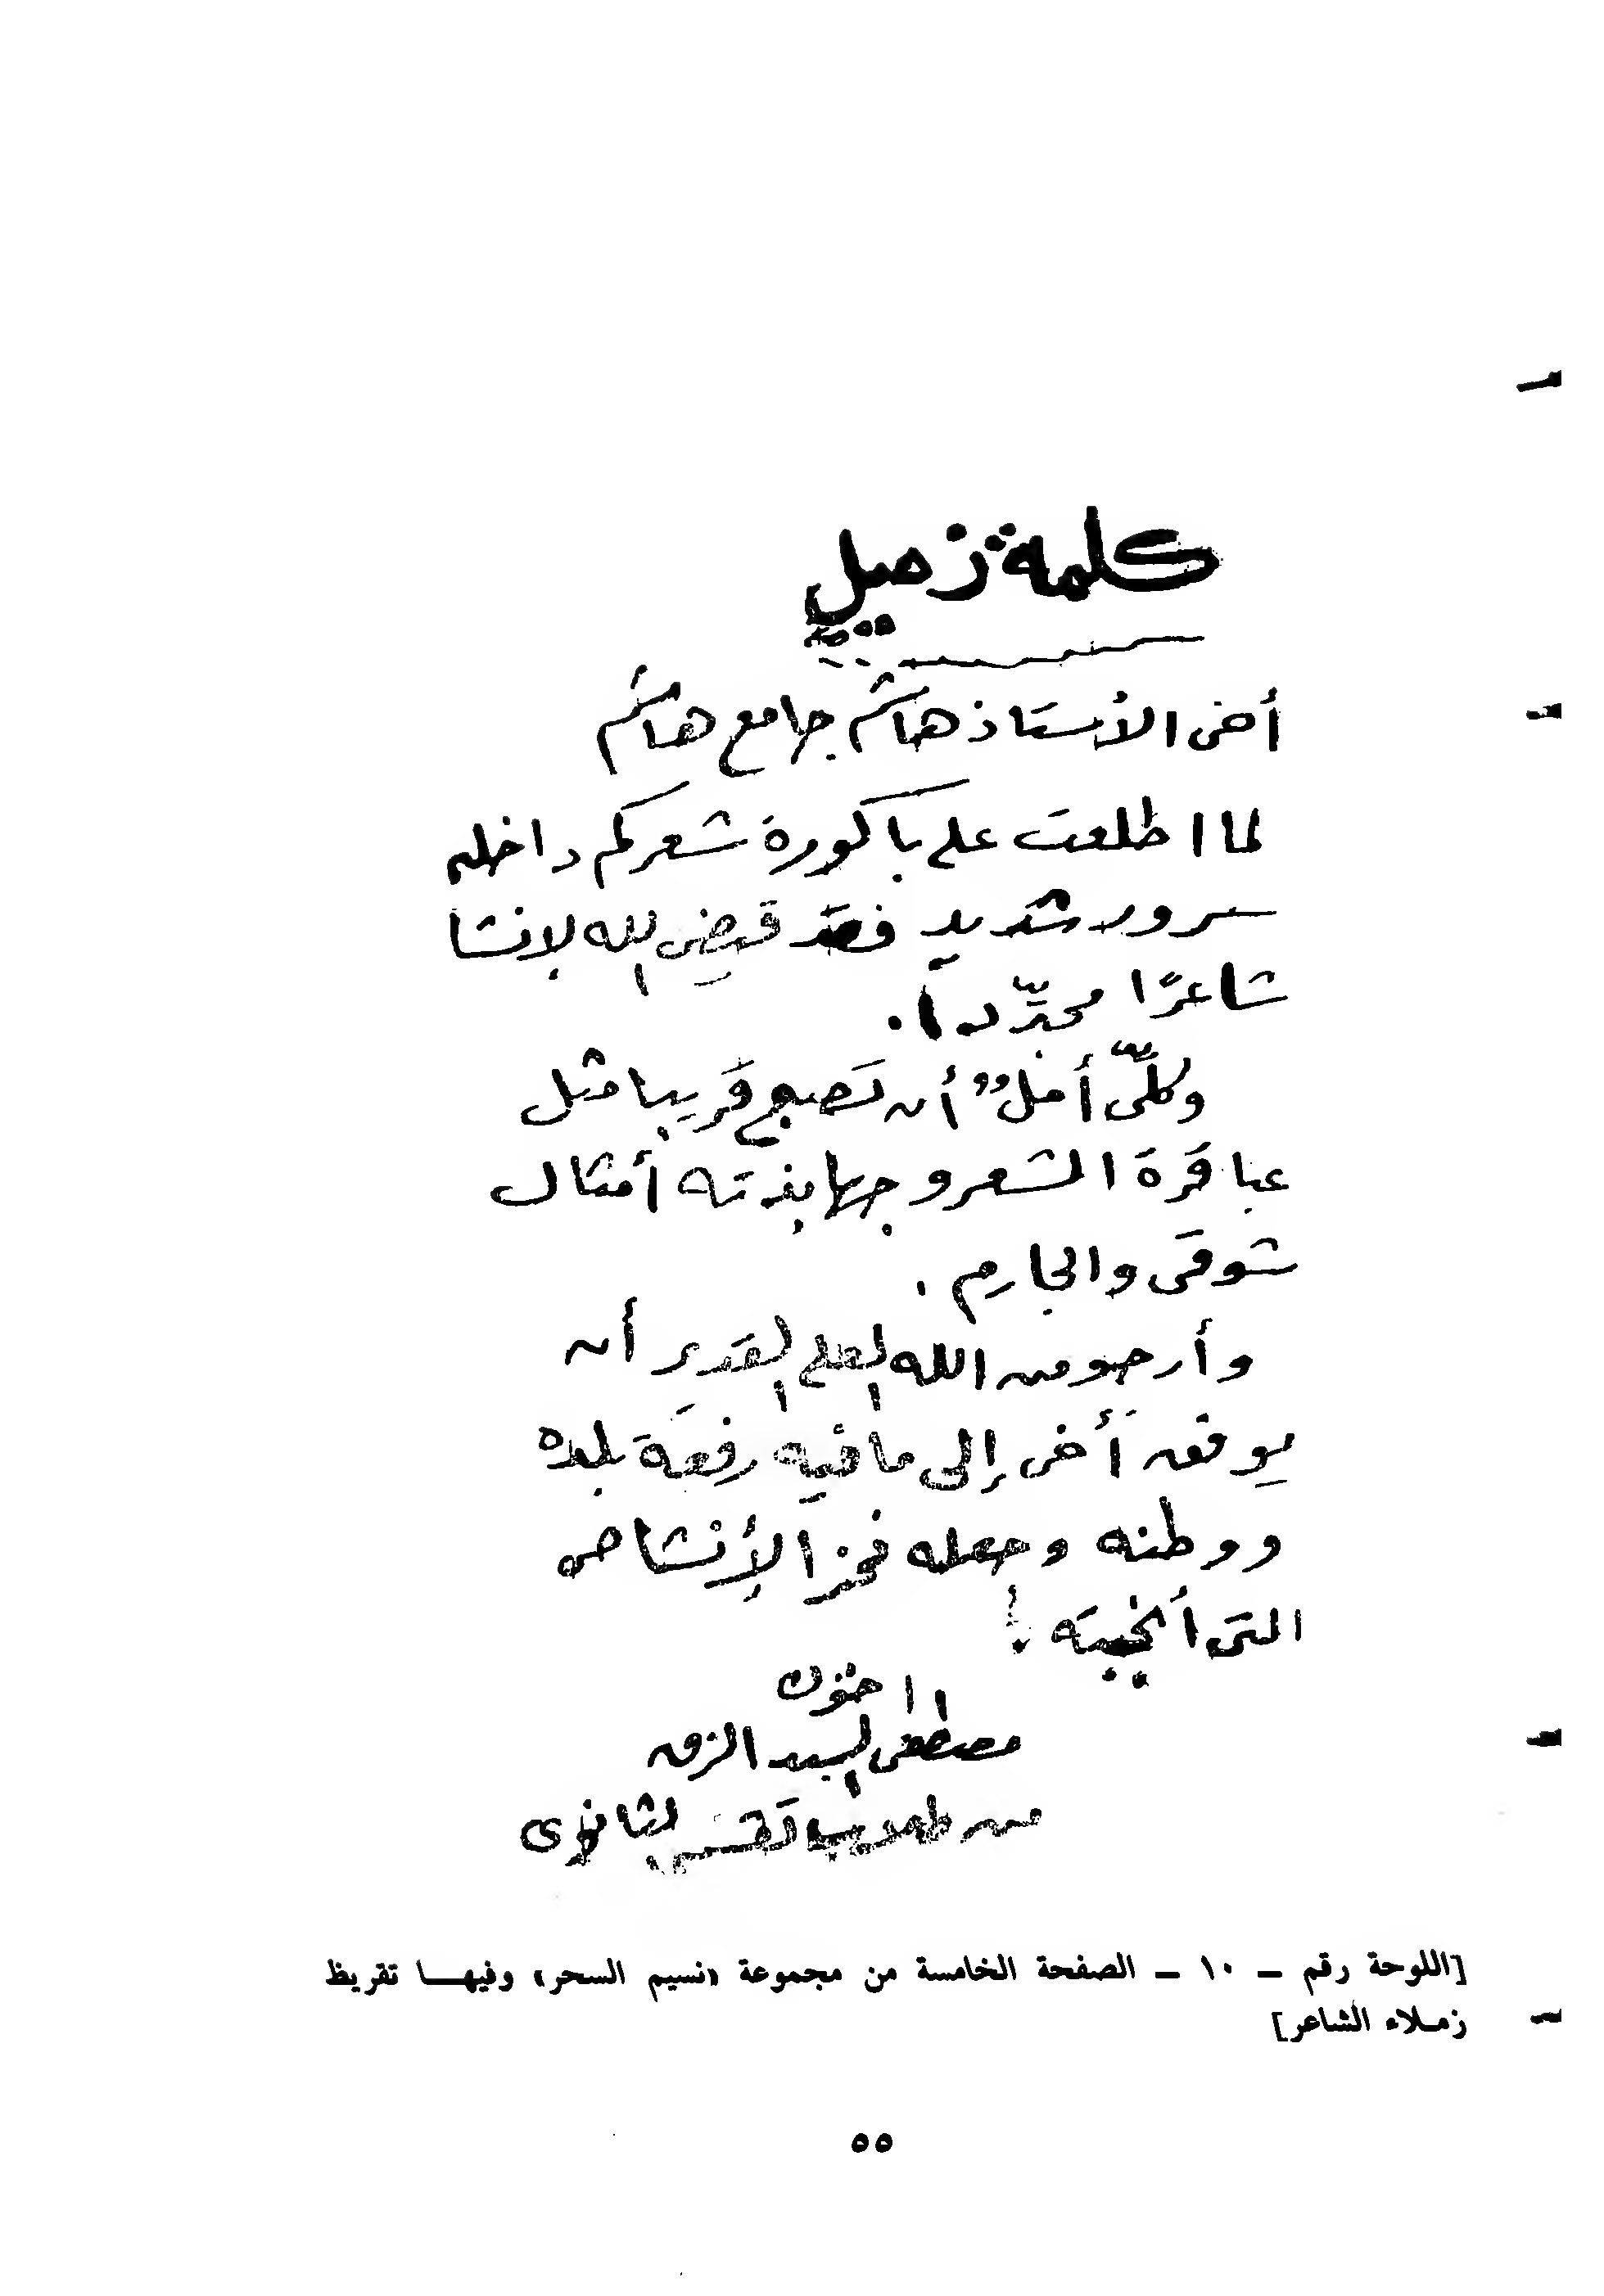 كلمة زميل
أخى الأستاذ هاشم جامع هاشم
لما اطلعت على باكورة شعركم داخلنى
سرور شديد فقد قيض الله لإنشا
شاعرًا مجدّدا.
وكلّى أملٌ أن تصبح قريبا مثل
عباقرة الشعر وجهابذته أمثال
شوقى والجارم.
وأرجو من الله العلى القدير أن
يوفق أخى إلى ما فيه رفعة بلده
ووطنه وجعله فخر الأنشاص
التى أنجبته
أخوك
مصطفى السيد
من طلاب القسم الثانوى
[اللوحة رقم – ١٠ – الصفحة الخامسة من مجموعة «نسيم السحر» وفيها تقريظ
زملاء الشاعر]
٥٥